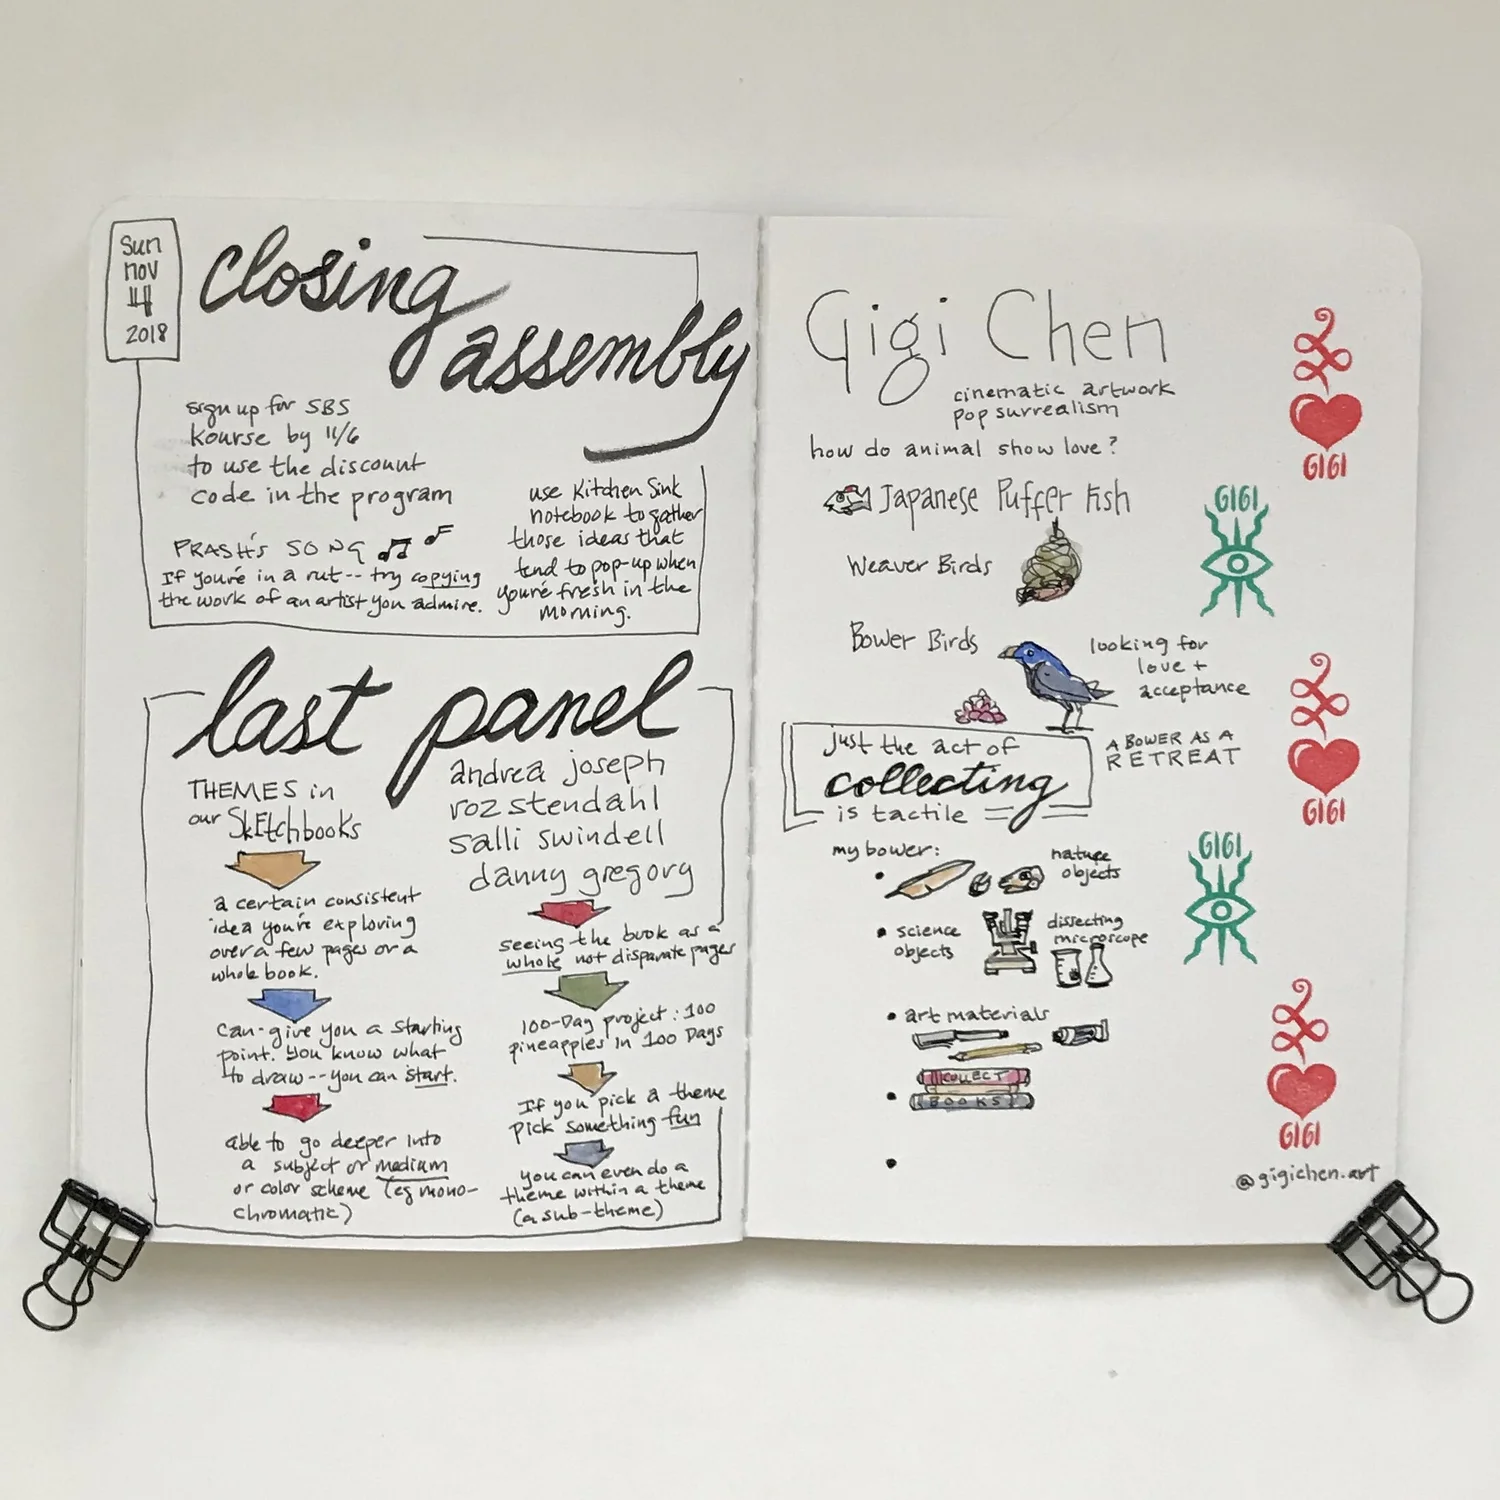 Sun
nov
4
2018
closing
assembly
sign up for SBS
Kourse by 11/6
to use the discount
code in the program
PRASH's SONG
If you're in a rut -- try copying
the work of an artist you admire.
use Kitchen Sink
notebook to gather
those ideas that
tend to pop-up when
you're fresh in the
morning.
last panel
THEMES in
our SkEtchbooks
a certain consistent
idea you're exploring
over a few pages or a
whole book.
Can give you a starting
point. You know what
to draw -- you can start.
able to go deeper into
a subject or medium
or color scheme (eg mono-
chromatic)
andrea joseph
roz stendahl
salli swindell
danny gregory
seeing the book as a
whole not disparate pages
100-Day project: 100
pineapples in 100 Days
If you pick a theme
pick something fun
you can even do a
theme within a theme
(a sub-theme)
Gigi Chen
cinematic artwork
pop surrealism
how do animal show love?
Japanese Puffer Fish
Weaver Birds
Bower Birds
looking for
love +
acceptance
A BOWER AS A
RETREAT
just the act of
collecting
is tactile
my bower:
nature
objects
science
objects
dissecting
microscope
art materials
COLLECT
BOOKS
GIGI
GIGI
GIGI
GIGI
GIGI
@gigichen.art